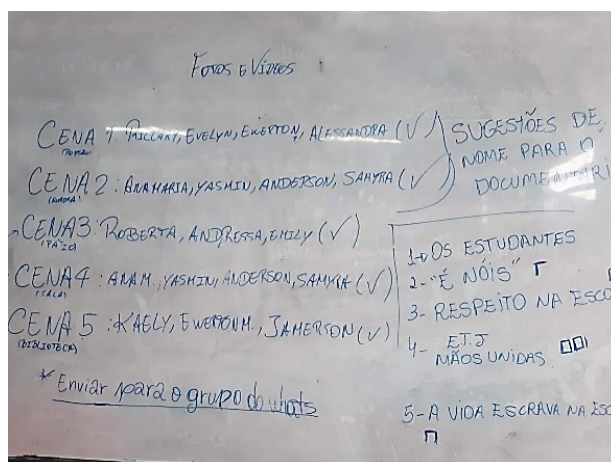 FOTOS E VÍDEOS
CENA 1: EVELYN, EWERTON, ALESSANDRA (✓)
CENA 2: ANAMARIA, YASMIN, ANDERSON, SAMYRA (✓)
CENA3: ROBERTA, ANDRESSA, EMILY (✓)
(PÁTIO)
CENA4: ANAM., YASMIN, ANDERSON, SAMYRA (✓)
(SALA)
CENA 5: KAELY, EWERTON M., JAMERSON (✓)
(BIBLIOTECA)
* Enviar para o grupo do whats
SUGESTÕES DE
NOME PARA O
DOCUMENTARI
1- OS ESTUDANTES
2- "É NÓIS"
3- RESPEITO NA ESCO
4- E.T.J
MÃOS UNIDAS
5- A VIDA ESCRAVA NA ESC